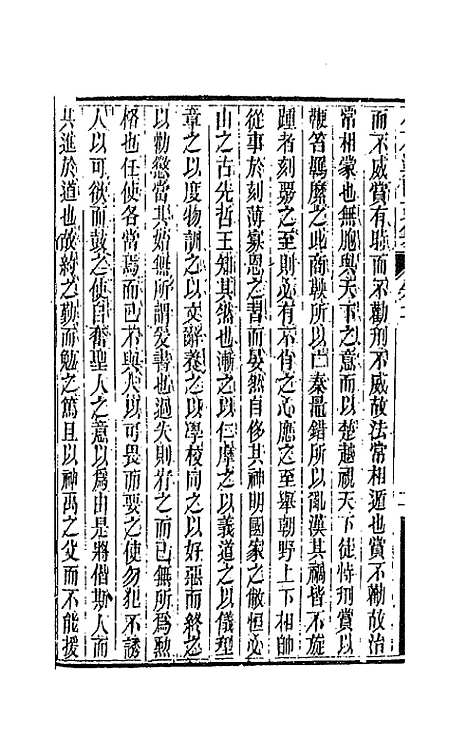 而不威賞有賜而不勸刑不威故法常相遁也賞不勸故治
常相蒙也無胞與天下之意而以楚越視天下徒恃刑賞以
鞭笞羈縻之此商鞅所以亡秦鼂錯所以亂漢其禍皆不旋
踵者刻覈之至則必有不肖之心應之至舉朝野上下相帥
從事於刻薄寡恩之書而晏然自侈其神明國家之敝恒必
山之古先哲王知其然也漸之以仁摩之以義道之以儀型
章之以度物訓之以文辭養之以學校同之以好惡而終之
以勸懲當其始無所謂爰書也過失則宥之而已無所爲勲
格也任使各當焉而已不與人以可畏而要之使勿犯不誘
人以可欲而鼓之使自奮聖人之意以爲由是將偕斯人而
共進於道也故約之勤而勉之篤且以神禹之父而不能援